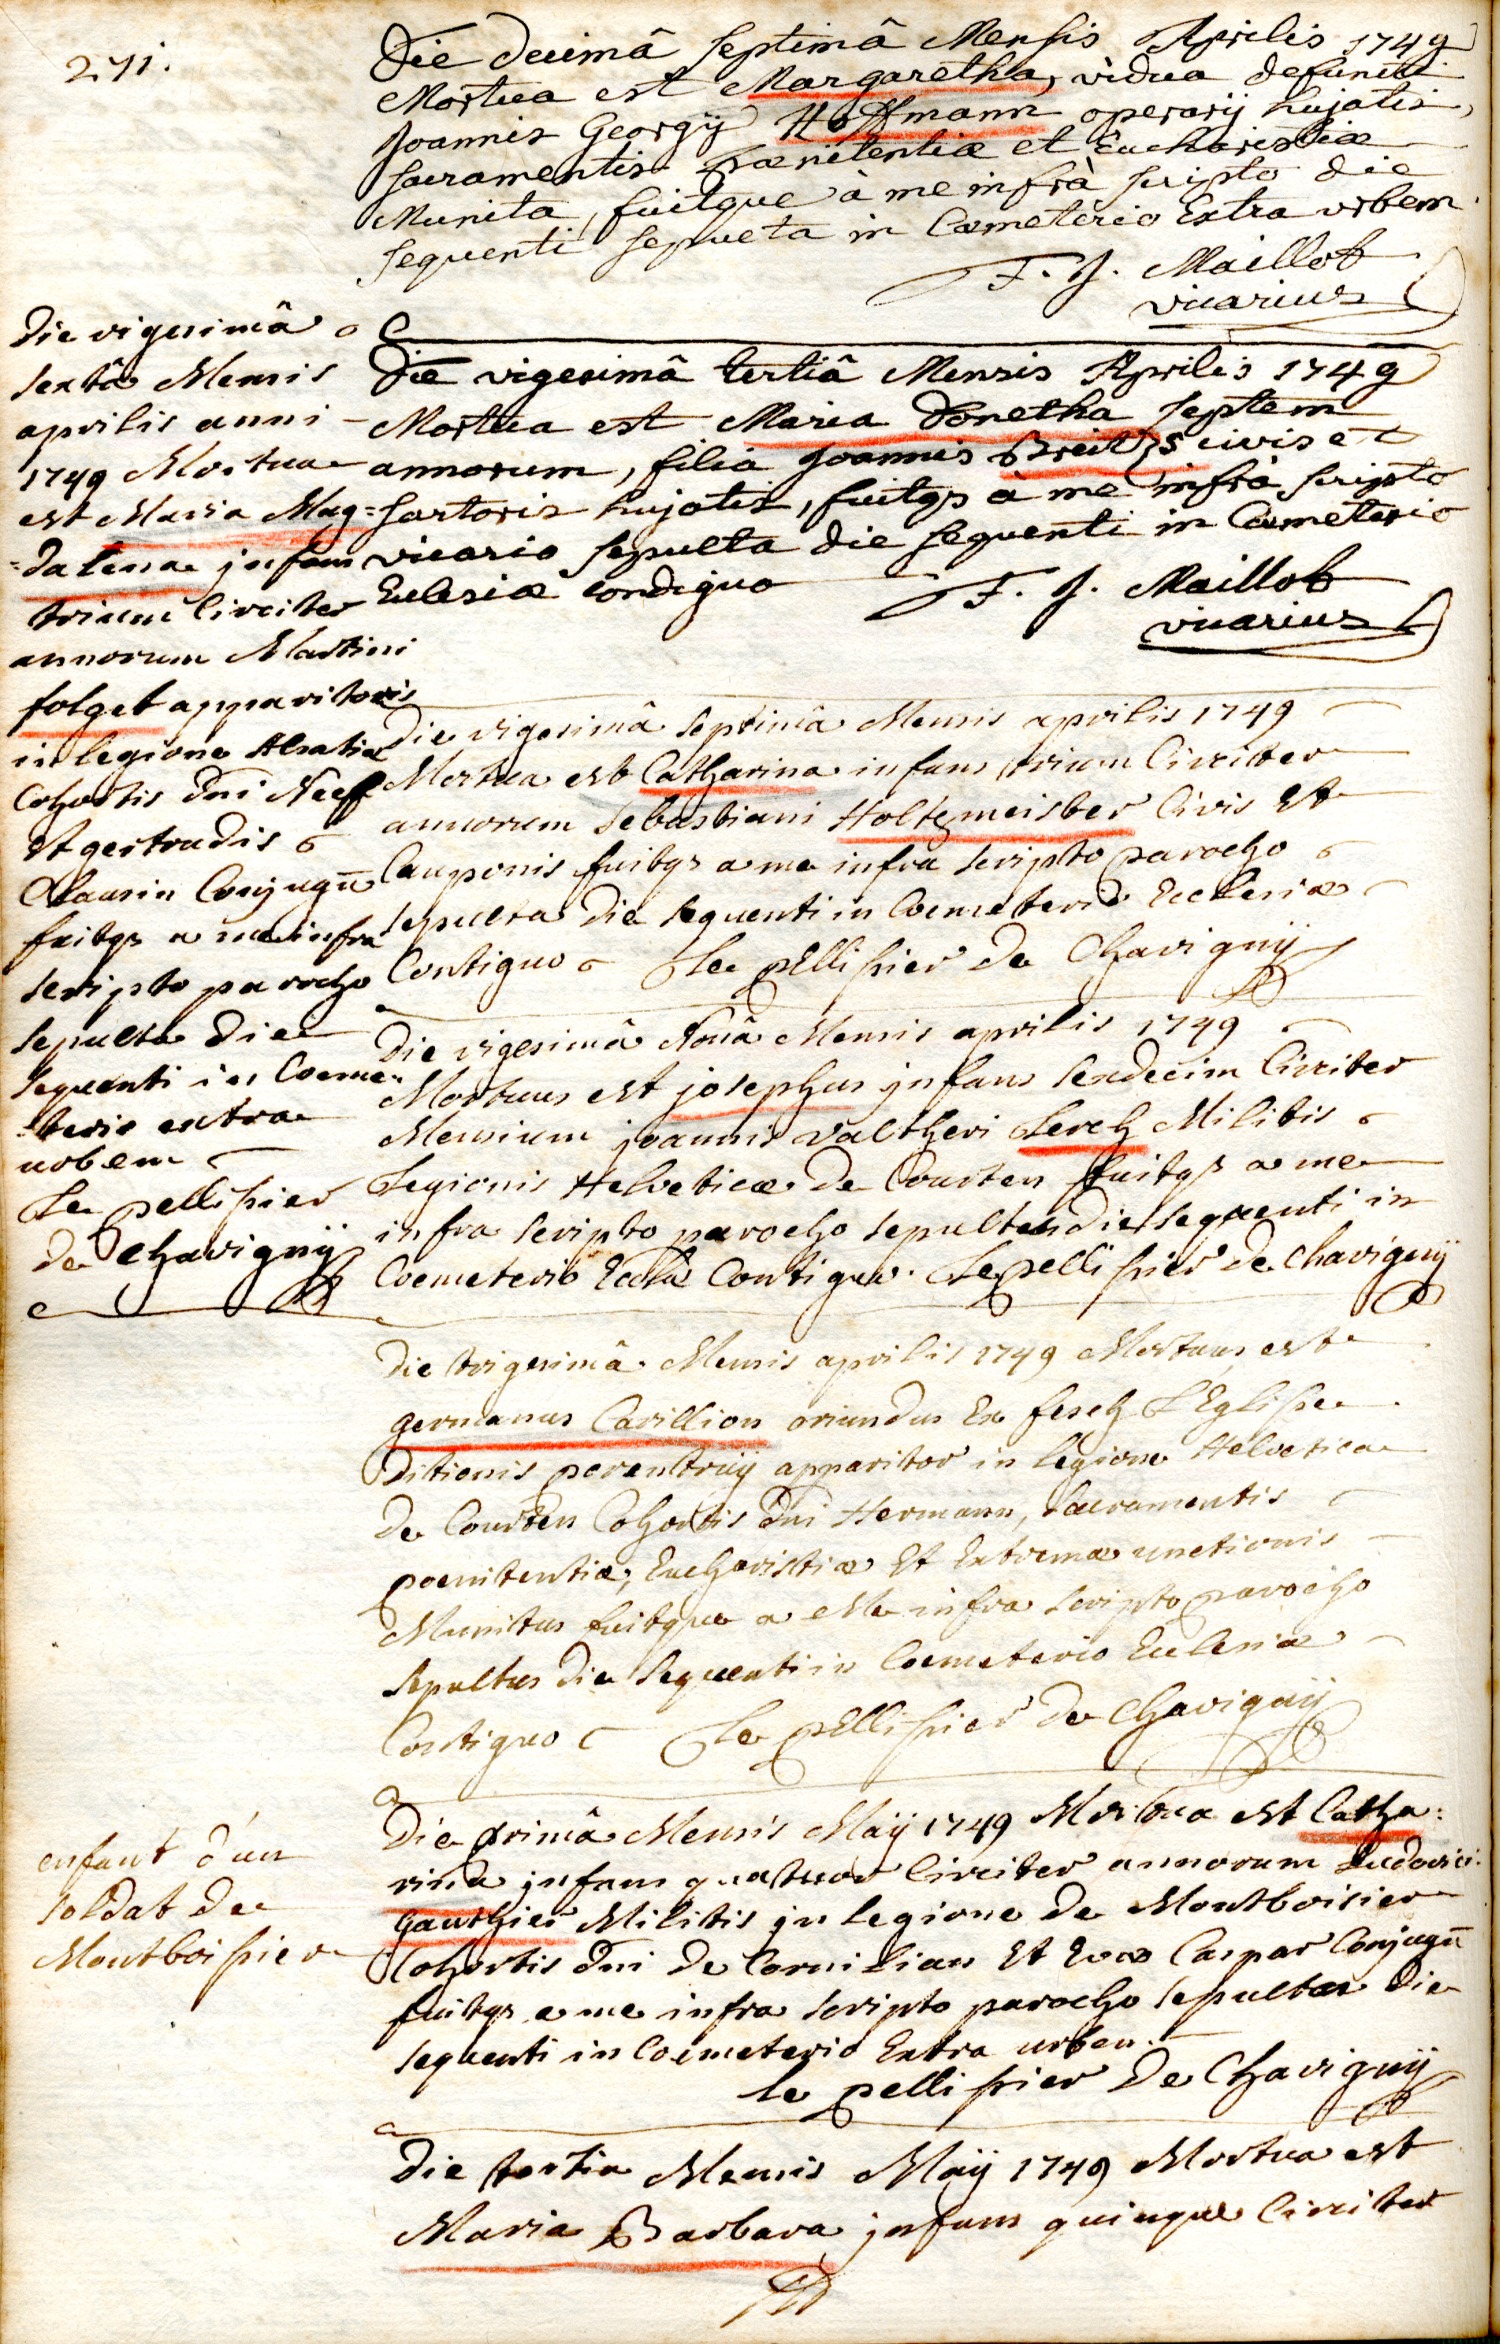 271.
Die decimâ septimâ Mensis Aprilis 1749
Mortua est Margaretha, vidua defuncti
Joannis Georgÿ Hoffmann operarÿ hujatis,
sacramentis Pœnitentiæ et Eucharistiæ
Munita, fuitque à me infrà scripto die
sequenti sepulta in Cœmeterio Extra urbem.
F. J. Maillot
vicarius
Die vigesimâ tertiâ Mensis Aprilis 1749
Mortua est Maria Dorretha septem
annorum, filia Joannis Breit civis et
sartoris hujatis, fuitqs à me infrà scripto
vicario sepulta die sequenti in Cœmeterio
Eclesiæ condiguo
F. J. Maillot
vicarius
Die vigesimâ
sextâ Mensis
aprilis anni
1749 Mortua
est Maria Mag=
=dalena jnfans
trium Circiter
annorum Martini
folget apparitoris
in legione Alsatiæ
Cohortis Dni Neeff
Et gertrudis
Clausin Conjugū
fuitqs a me infra
scripto parocho
sepulta Die
sequenti in Coeme-
-terio extra
urbem
Le pellissier
de Chavignÿ
Die vigesimâ septimâ Mensis aprilis 1749
Mortua est Catharina infans trium Circiter
annorum Sebastiani Holtzmeister Civis Et
Cauponis fuitqs a me infra scripto parocho
sepulta Die sequenti in Coemeterio Ecclesiæ
Contiguo Le pellissier de Chavignÿ
Die vigesimâ Nonâ Mensis aprilis 1749
Mortuus est josephus jnfans sexdecim Circiter
Mensium joannis Valtheri Lerch Militis
Legionis Helveticæ De Courten fuitqs a me
infra scripto parocho sepultus die sequenti in
Coemeterio Eccłæ Contiguo. Le pellissier de Chavignÿ
Die trigesimâ Mensis aprilis 1749 Mortuus est
germanus Carillion oriundus Ex fesch L'Eglisse
Ditionis porentruÿ apparitor in legione Helvetica
De Courten Cohortis Dni Hermann, Sacramentis
poenitentiæ, Eucharistiæ Et Extremæ unctionis
Munitus fuitque a Me infra scripto parocho
sepultus die sequenti in Coemeterio Eclesiæ
Contiguo Le pellissier De Chavignÿ
Die primâ Mensis Maÿ 1749 Mortua est Catha:
rina jnfans quatuor Circiter annorum Ludovici
Gauthier Militis jn legione de Montboisier
Cohortis Dni De Cornilian Et Evæ Caspar Conjugū
fuitqs a me infra scripto parocho sepulta Die
sequenti in Coemeterio Extra urbem.
Le pellissier De Chavignÿ
enfant d'un
soldat de
Montboissier
Die tertia Mensis Maÿ 1749 Mortua est
Maria Barbara jnfans quinque Circiter